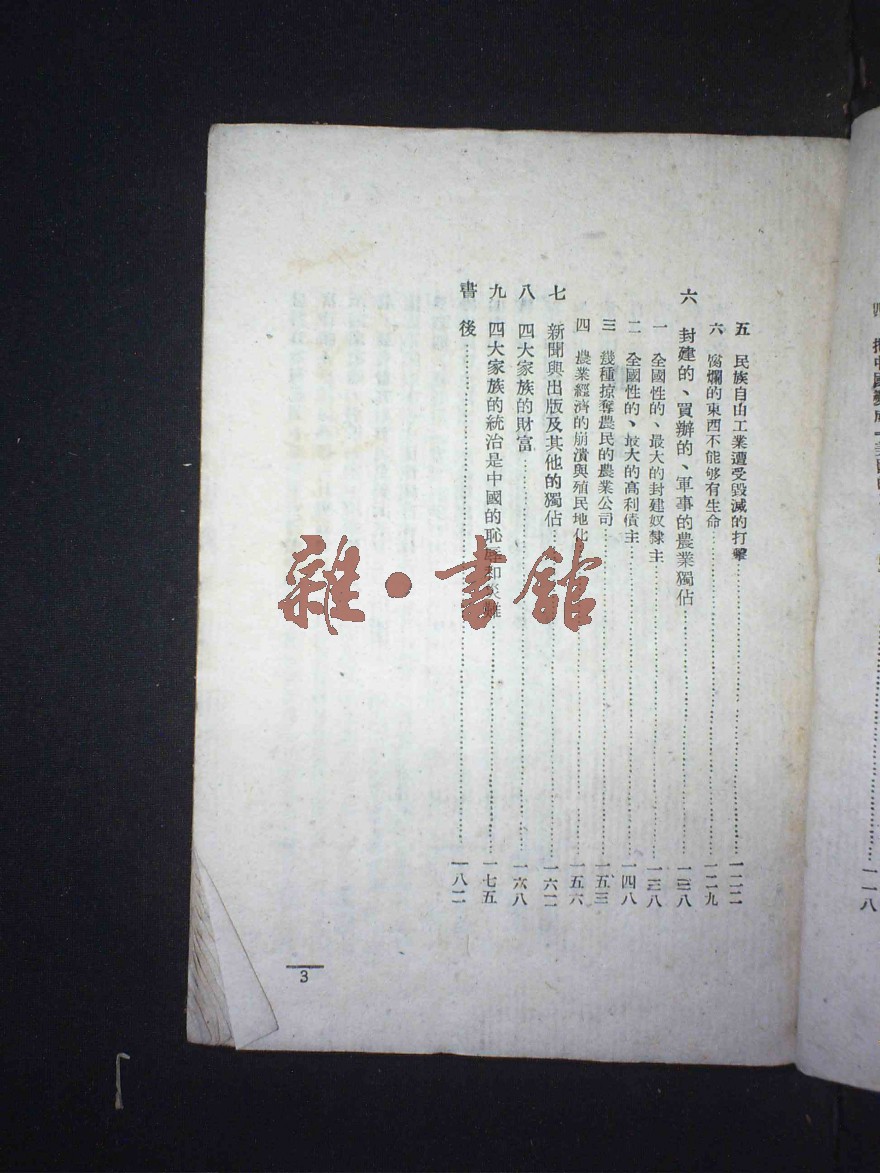 五 民族自由工業遭受毀滅的打擊……一二二
六 腐爛的東西不能够有生命……一二九
六 封建的、買辦的、軍事的農業獨佔……一三八
一 全國性的、最大的封建奴隸主……一三八
二 全國性的、最大的高利債主……一四八
三 幾種掠奪農民的農業公司……一五三
四 農業經濟的崩潰與殖民地化……一五六
七 新聞與出版及其他的獨佔……一六二
八 四大家族的財富……一六八
九 四大家族的統治是中國的恥辱和災難……一七五
書後……一八二
3
雜·書館
一一八